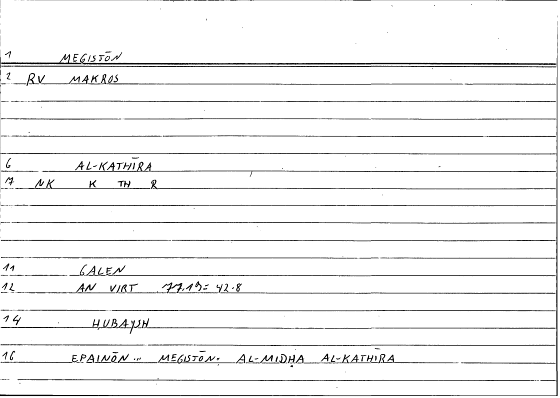 1 MEGISTŌN
2 RV MAKROS
6 AL-KATHĪRA
7 NK K TH R
11 GALEN
12 AN VIRT 77.19= 42.8
14 HUBAYSH
16 EPAINŌN... MEGISTŌN: AL-MIDḤA AL-KATHĪRA